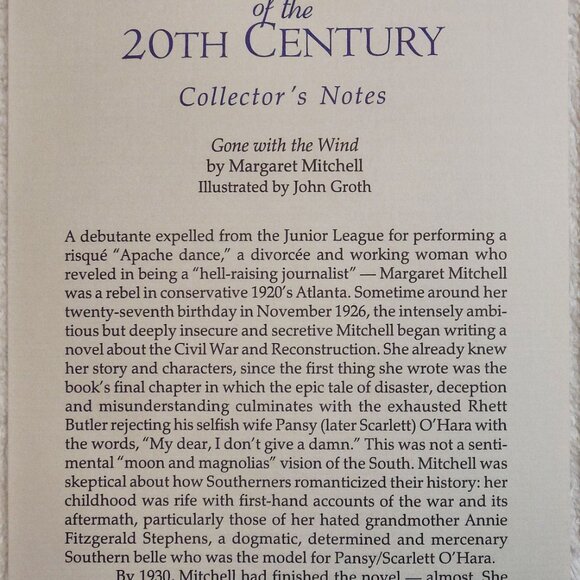 of the
20TH CENTURY
Collector's Notes
Gone with the Wind
by Margaret Mitchell
Illustrated by John Groth
A debutante expelled from the Junior League for performing a
risqué “Apache dance,” a divorcée and working woman who
reveled in being a “hell-raising journalist” — Margaret Mitchell
was a rebel in conservative 1920’s Atlanta. Sometime around her
twenty-seventh birthday in November 1926, the intensely ambi-
tious but deeply insecure and secretive Mitchell began writing a
novel about the Civil War and Reconstruction. She already knew
her story and characters, since the first thing she wrote was the
book’s final chapter in which the epic tale of disaster, deception
and misunderstanding culminates with the exhausted Rhett
Butler rejecting his selfish wife Pansy (later Scarlett) O’Hara with
the words, “My dear, I don’t give a damn.” This was not a senti-
mental “moon and magnolias” vision of the South. Mitchell was
skeptical about how Southerners romanticized their history: her
childhood was rife with first-hand accounts of the war and its
aftermath, particularly those of her hated grandmother Annie
Fitzgerald Stephens, a dogmatic, determined and mercenary
Southern belle who was the model for Pansy/Scarlett O’Hara.
By 1930, Mitchell had finished the novel — almost. She